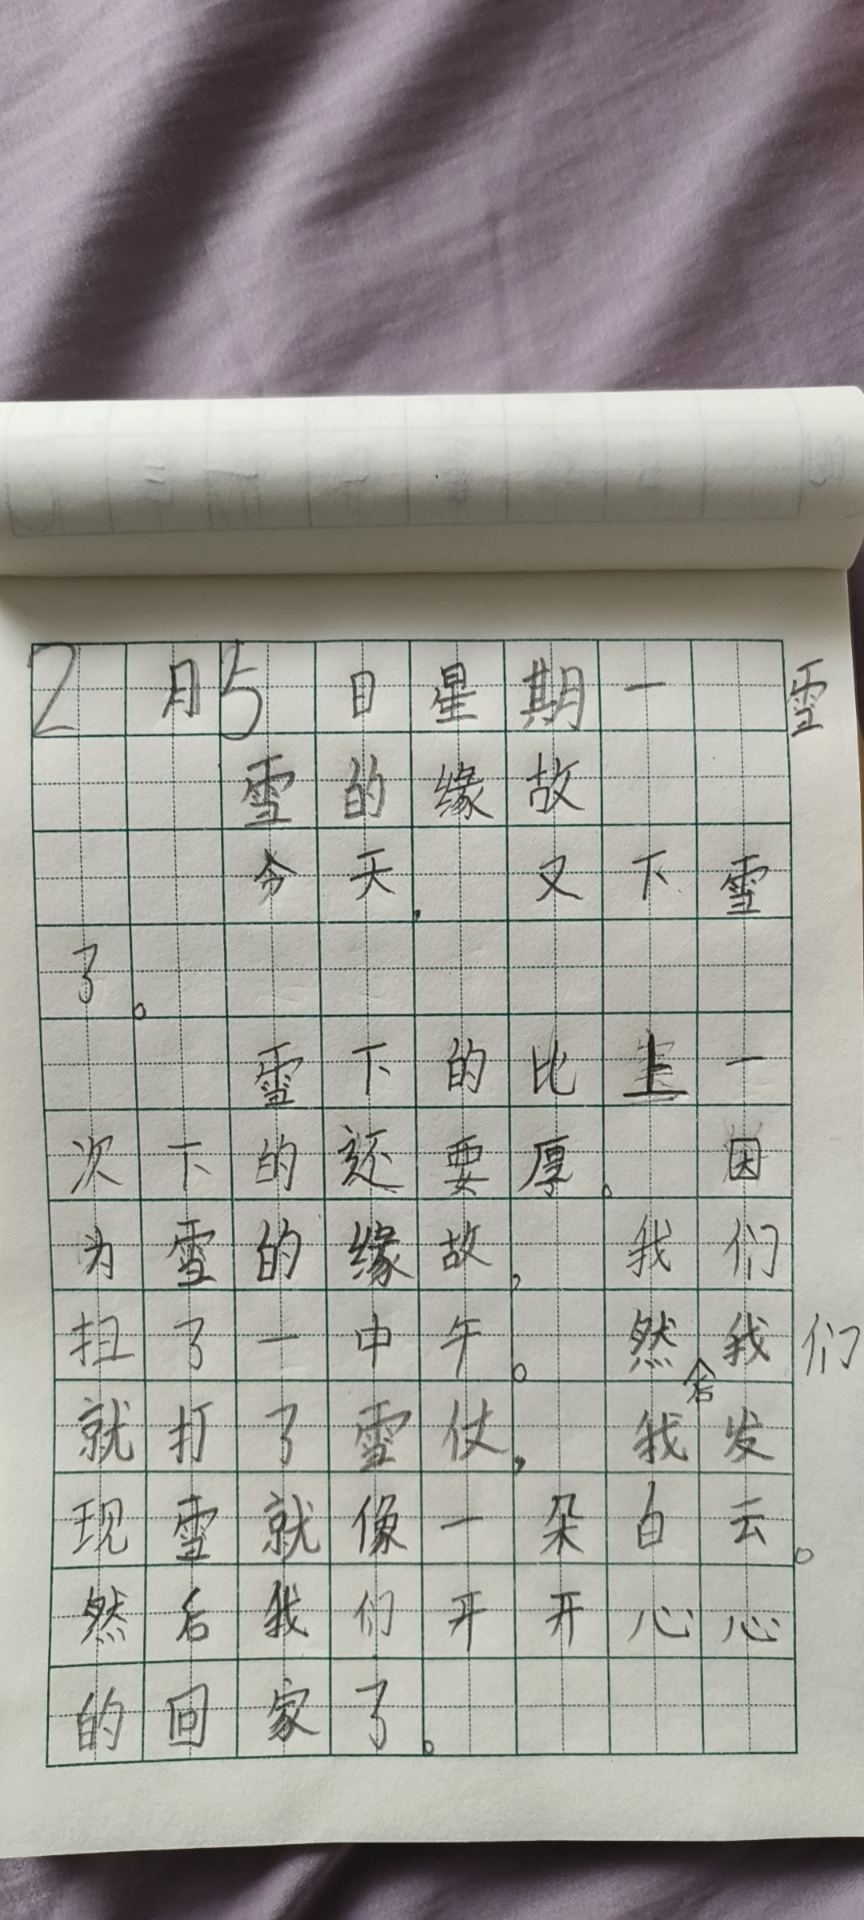 2月5日星期一 雪
雪的缘故
今天,又下雪
了。
雪下的比上一
次下的还要厚。因
为雪的缘故,我们
扫了一中午。然后我们
就打了雪仗,我发
现雪就像一朵白云。
然后我们开开心心
的回家了。